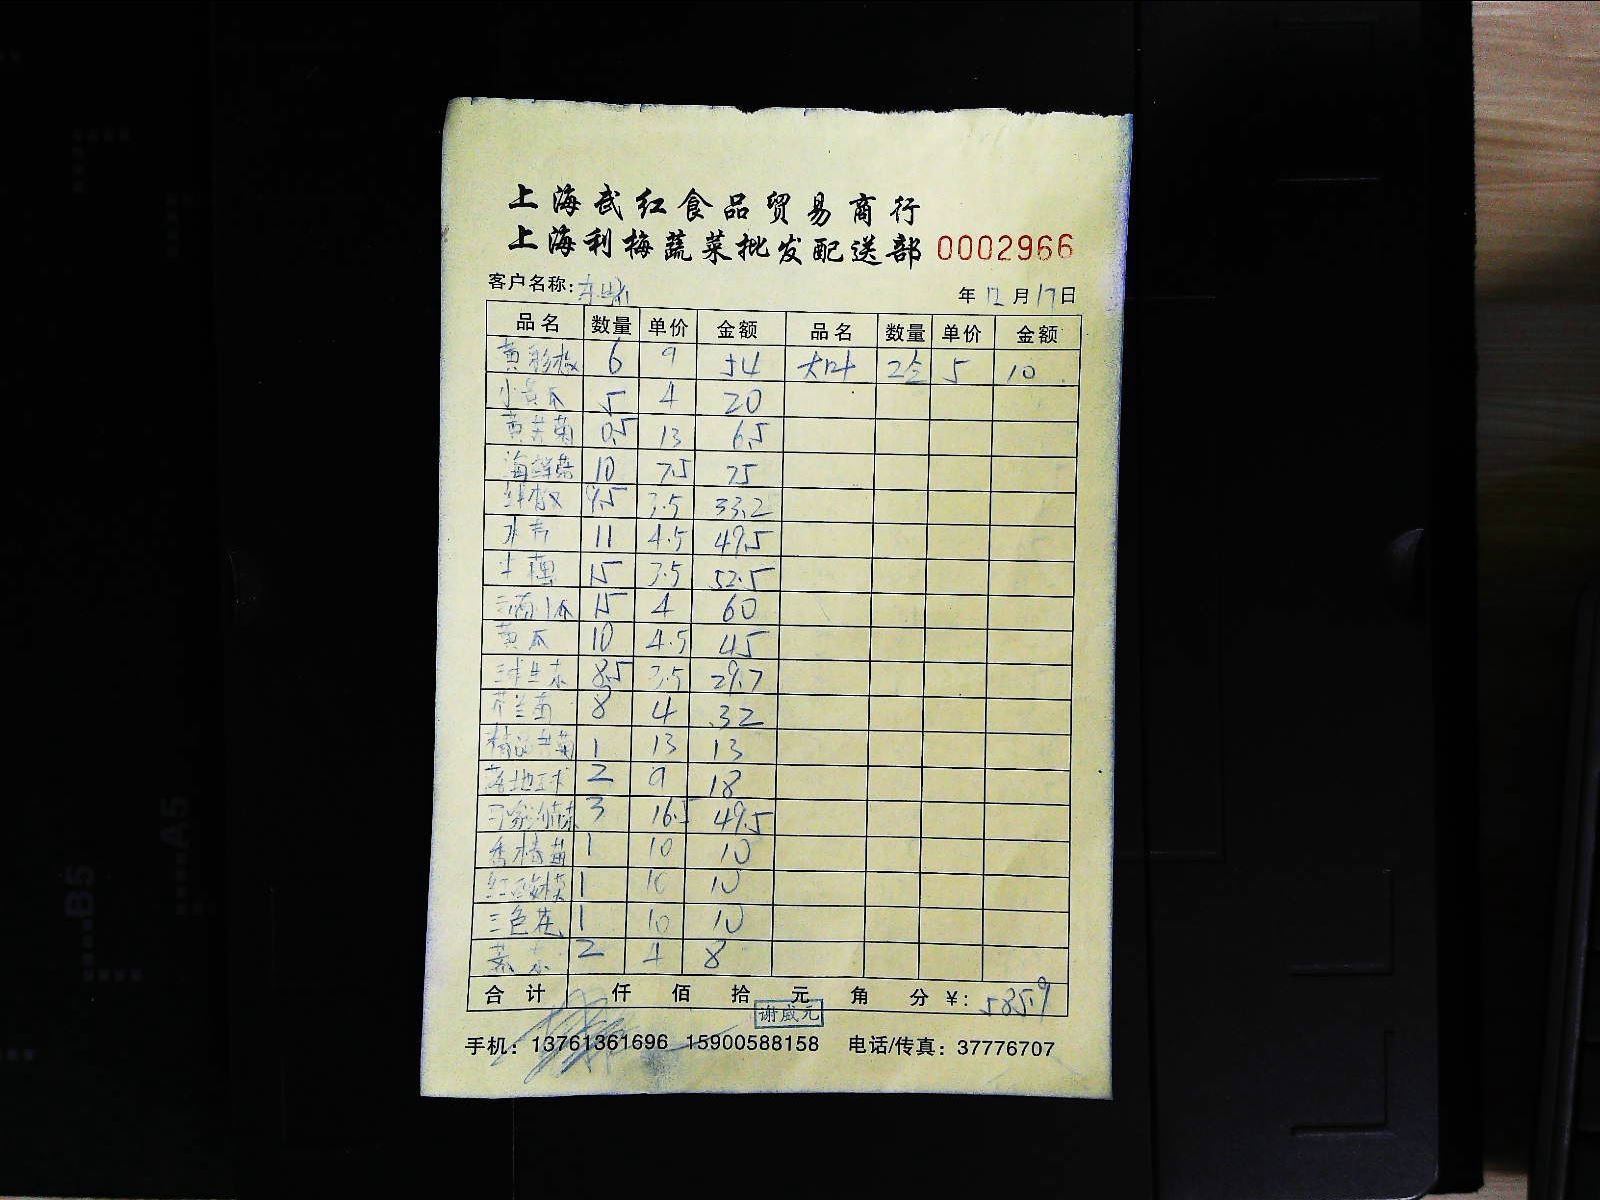 上海武红食品贸易商行
上海利梅蔬菜批发配送部 0002966
客户名称: 年 12 月 17 日
品名 数量 单价 金额 品名 数量 单价 金额
黄彩椒 6 9 54 大叶 2 5 10
小黄瓜 5 4 20
黄苦菊 0.5 13 6.5
海鲜菇 10 7.5 75
9.5 3.5 33.2
水芹 11 4.5 49.5
藕 15 3.5 52.5
云南小瓜 15 4 60
黄瓜 10 4.5 45
球生菜 8.5 3.5 29.7
荷兰黄 8 4 32
1 13 13
2 9 18
3 16.5 49.5
1 10 10
红酸模 1 10 10
三色花 1 10 10
2 4 8
合计 仟 佰 拾 元 角 分 ¥: 585.9
谢成元
手机: 13761361696 15900588158 电话/传真: 37776707
B5
A5